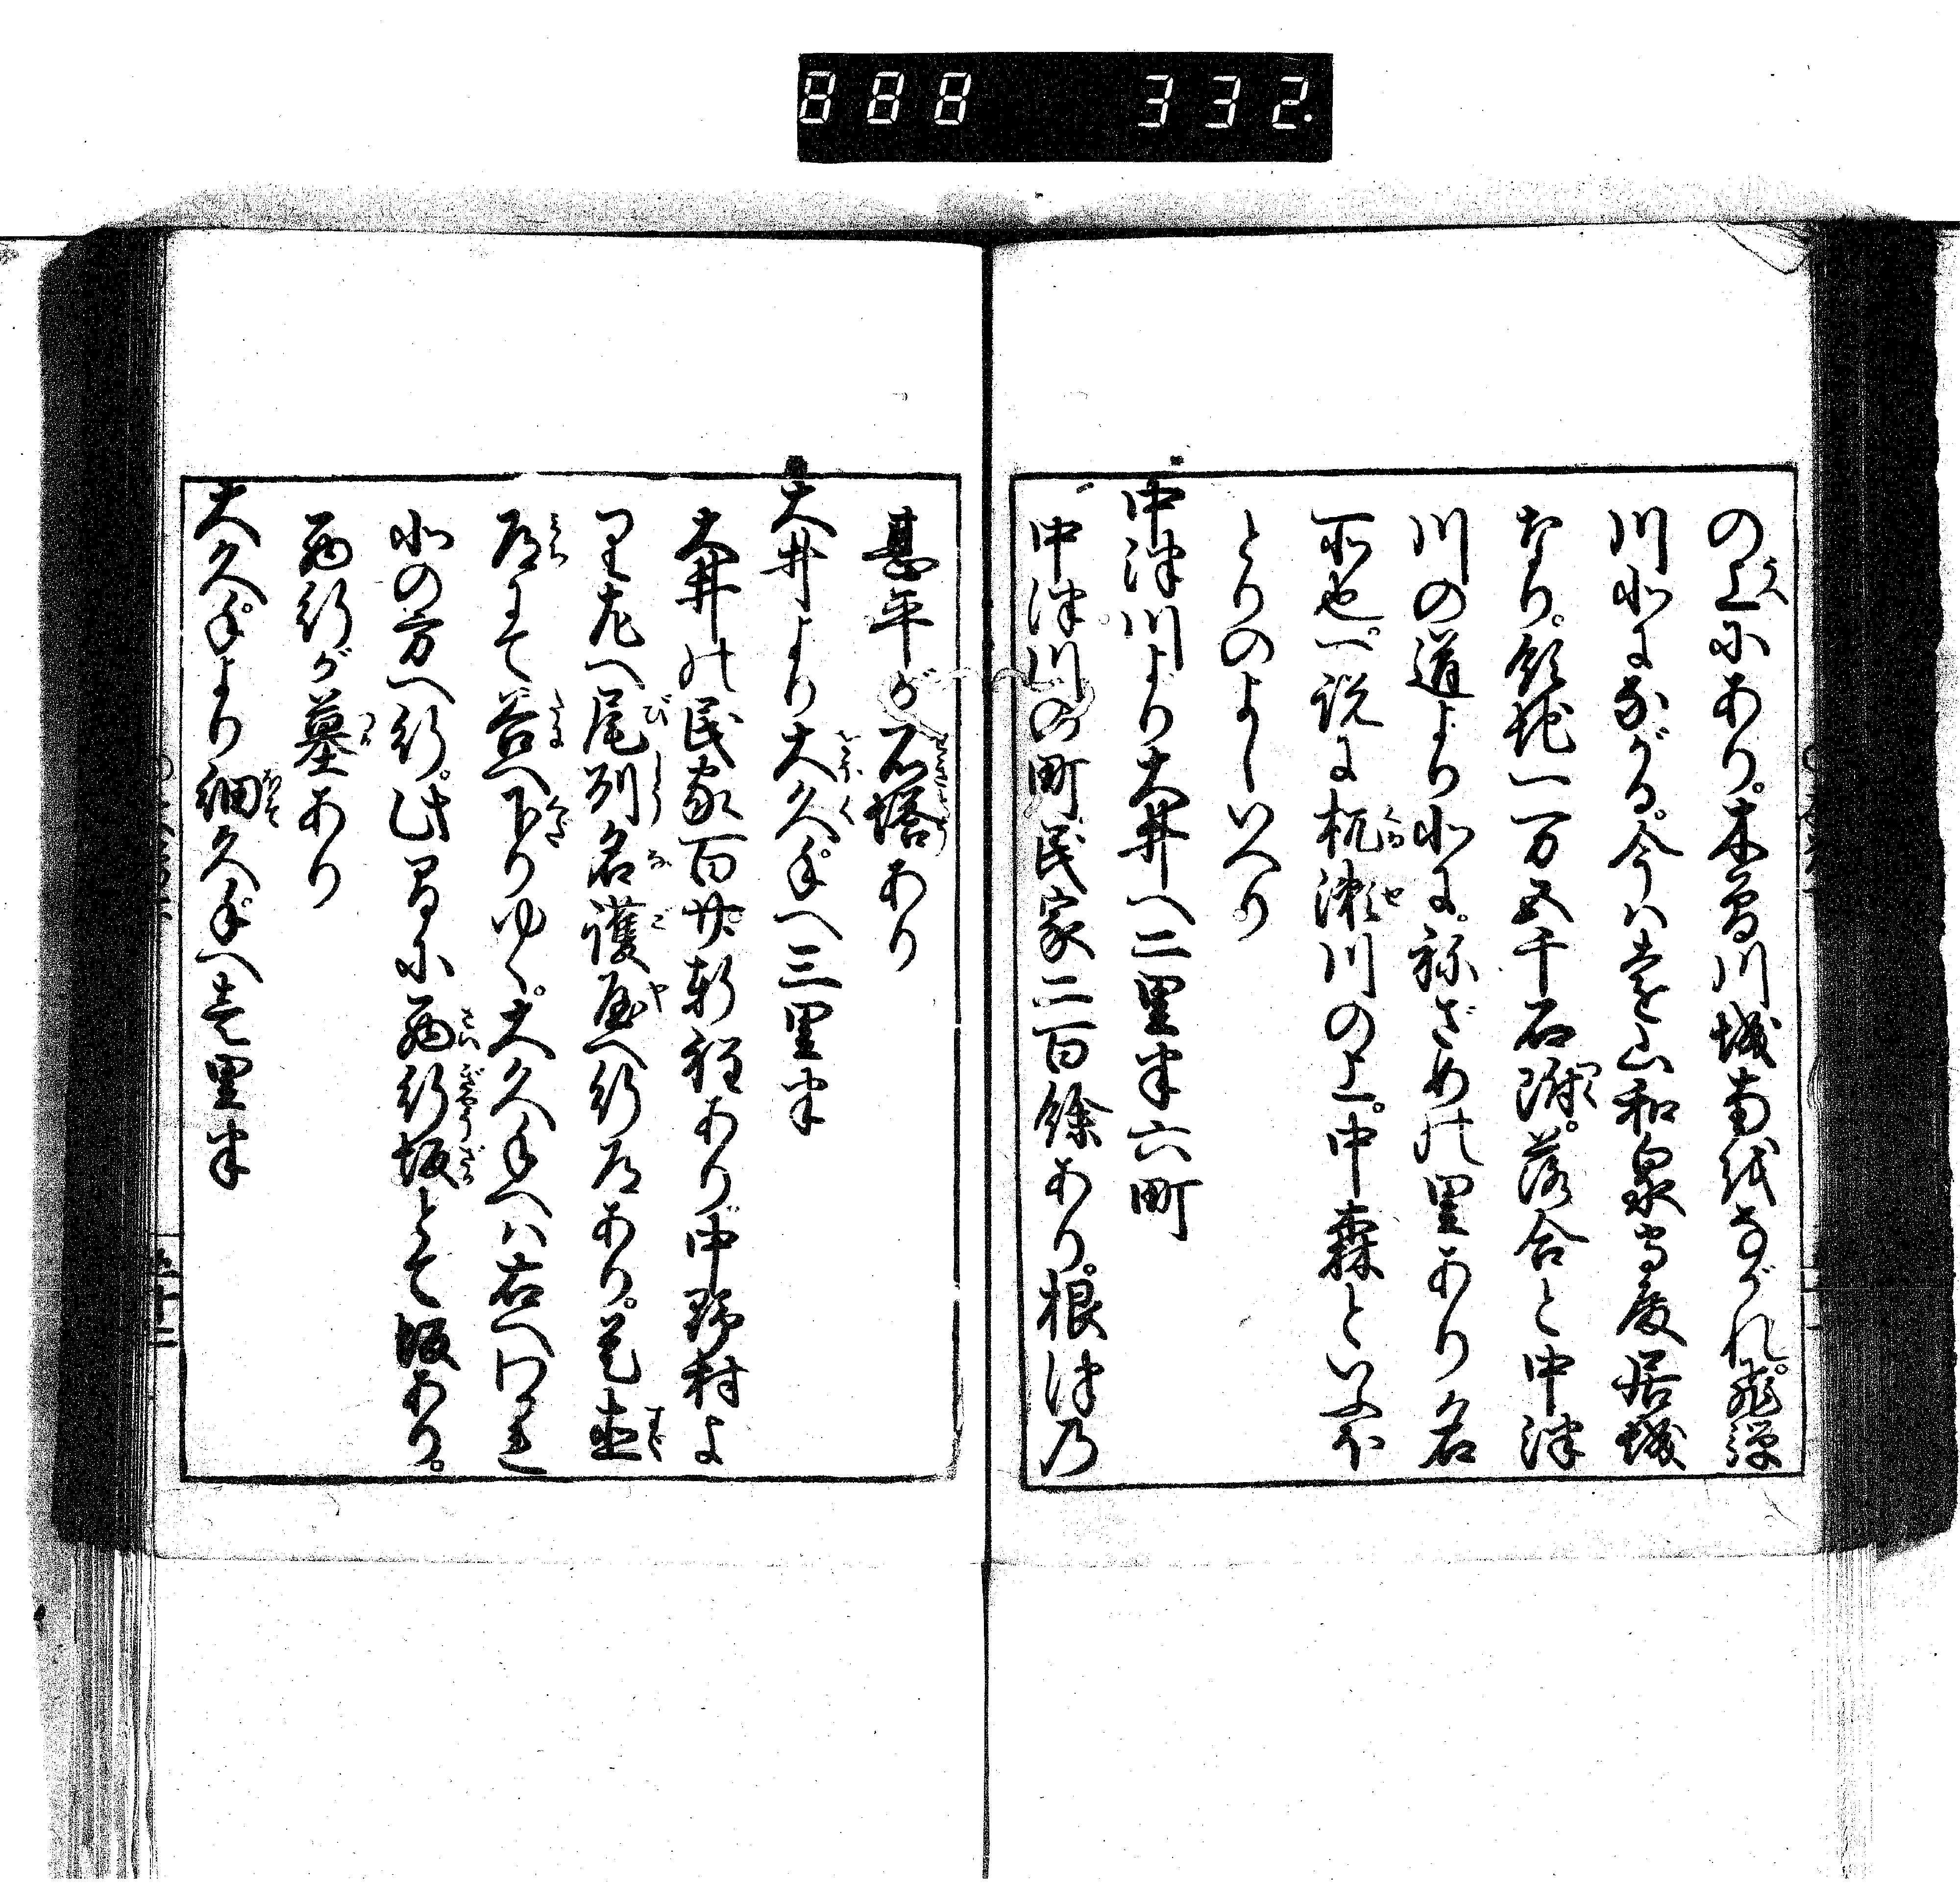 888 332.
の上にあり。木曽川城南をながれ。飛弾
川北にながる。今は遠山和泉守殿居城
なり。領地一万五千石附。落合と中津
川の道より北に。祢ざめの里あり名
所也。一説に杭瀬川の上。中森といふ
とりのよしいへり
中津川より大井へ二里半六町
中津川の町民家二百餘あり。根津乃
甚平が石塔あり
大井より大久手へ三里半
大井の民家百廿軒程あり中野村よ
り左へ尾州名護屋へ行道あり。是直
道にて谷へ下りゆく。大久手へハ右へわかれ
北の方へ行。此間に西行坂とて坂あり。
西行が墓あり
大久手より細久手へ壱里半